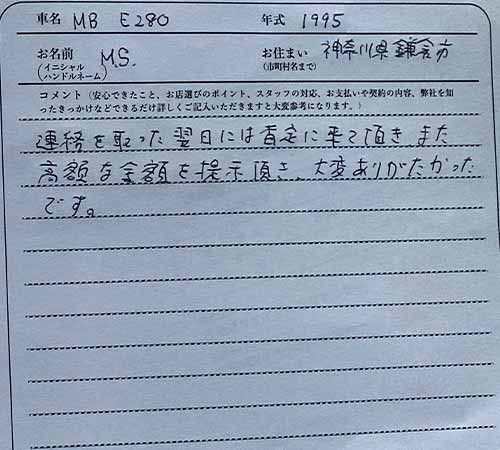 車名 MB E280 年式 1995
お名前 M.S. お住まい 神奈川県鎌倉市
(イニシャル ハンドルネーム) (市町村名まで)
コメント (安心できたこと、お店選びのポイント、スタッフの対応、お支払いや契約の内容、弊社を知
ったきっかけなどできるだけ詳しくご記入いただきますと大変参考になります。)
連絡を取った翌日には査定に来て頂き、また
高額な金額を提示頂き、大変ありがたかった
です。